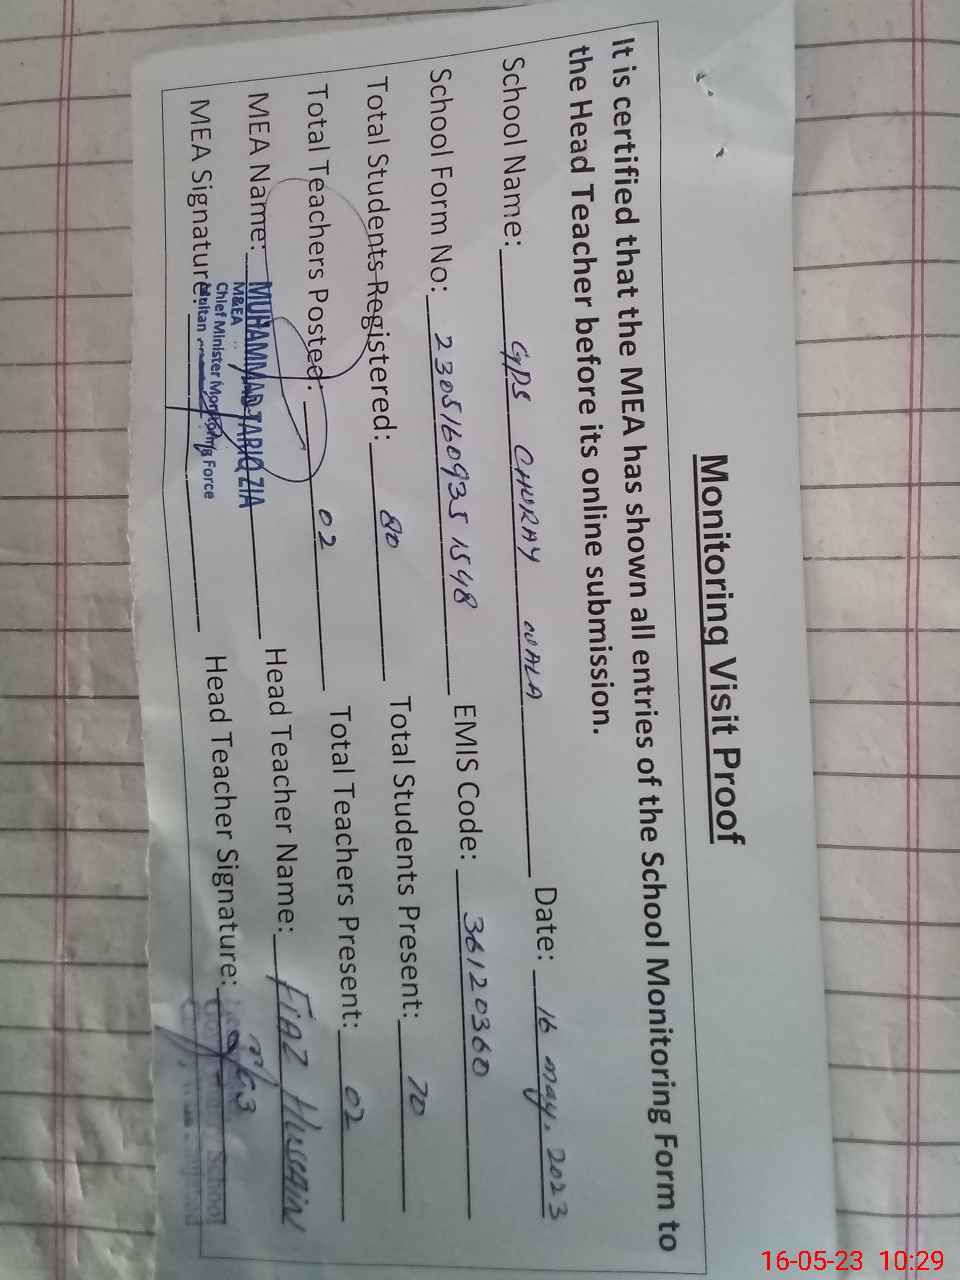 Monitoring Visit Proof
It is certified that the MEA has shown all entries of the School Monitoring Form to
the Head Teacher before its online submission.
School Name: GPS CHURAY WALA Date: 16 may, 2023
School Form No: 2305160935 1548 EMIS Code: 36120360
Total Students Registered: 80 Total Students Present: 70
Total Teachers Posted: 02 Total Teachers Present: 02
MEA Name: MUHAMMAD TARIQ ZIA Head Teacher Name: Fiaz Hussain
M&EA
Chief Minister Monitoring Force
MEA Signature: Multan Head Teacher Signature:
School
16-05-23 10:29